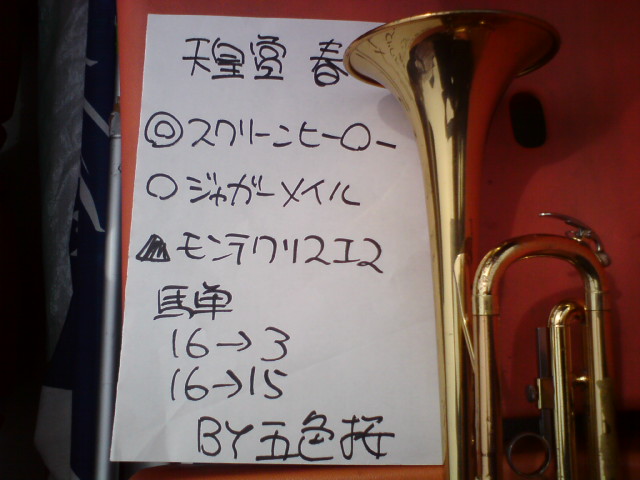 天皇賞 春
◎スクリーンヒーロー
○ジャガーメイル
▲モンテクリスエス
馬単
16→3
16→15
BY五色桜